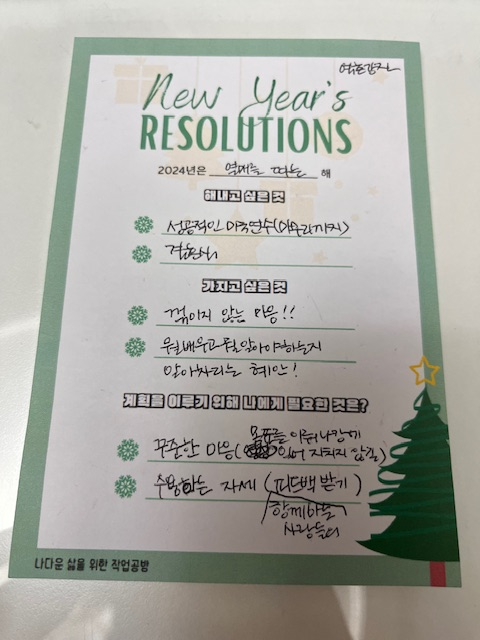 New Year's
RESOLUTIONS
2024년은 열매를 따는 해
해내고 싶은 것
성공적인 미국연수(마무리까지)
가지고 싶은 것
꺾이지 않는 마음!!
뭘 배우고 뭘 알아야하는지
알아차리는 혜안!
계획을 이루기 위해 나에게 필요한 것은?
목표를 이뤄나감에
꾸준한 마음( 있어 지치지 않길)
수용하는 자세 (피드백 받기)
함께하는
사람들의
나다운 삶을 위한 작업공방